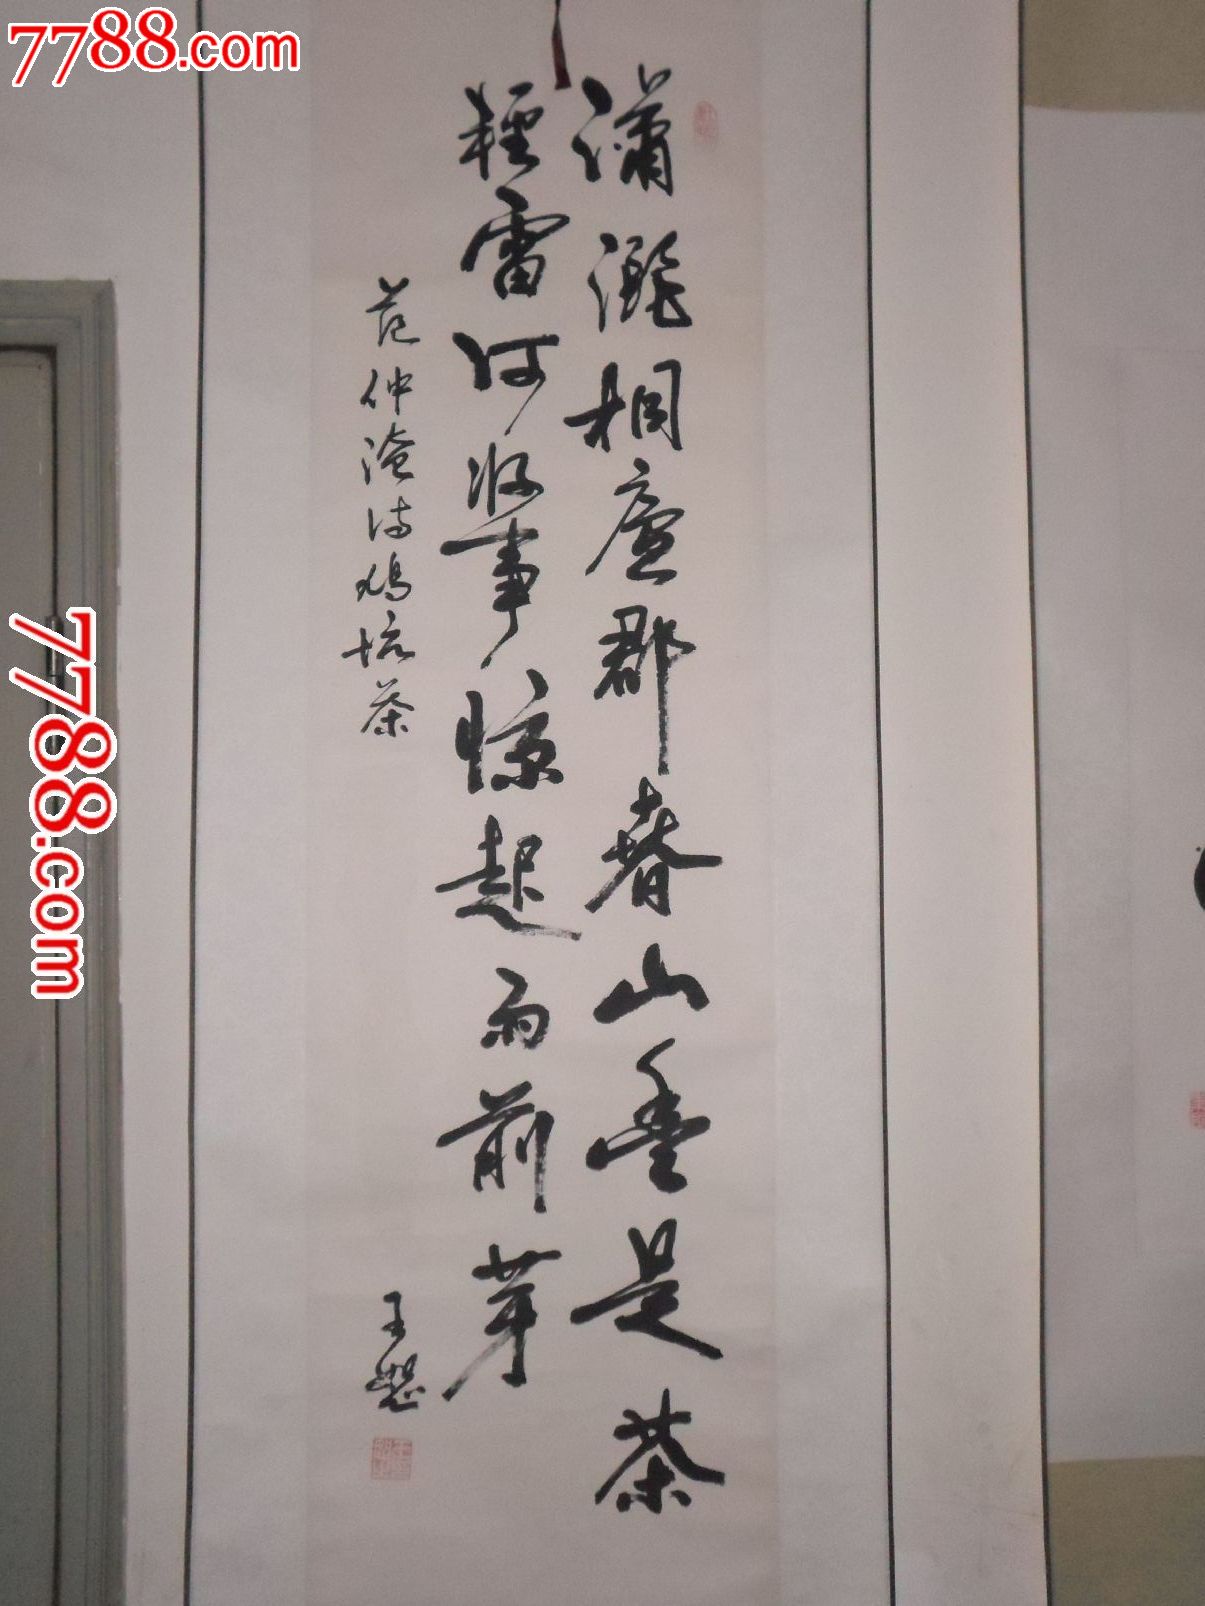 7788.com
瀟灑桐廬郡春山盡是茶
輕雷何好事惊起雨前芽
范仲淹诗鳩坑茶
王
7788.com